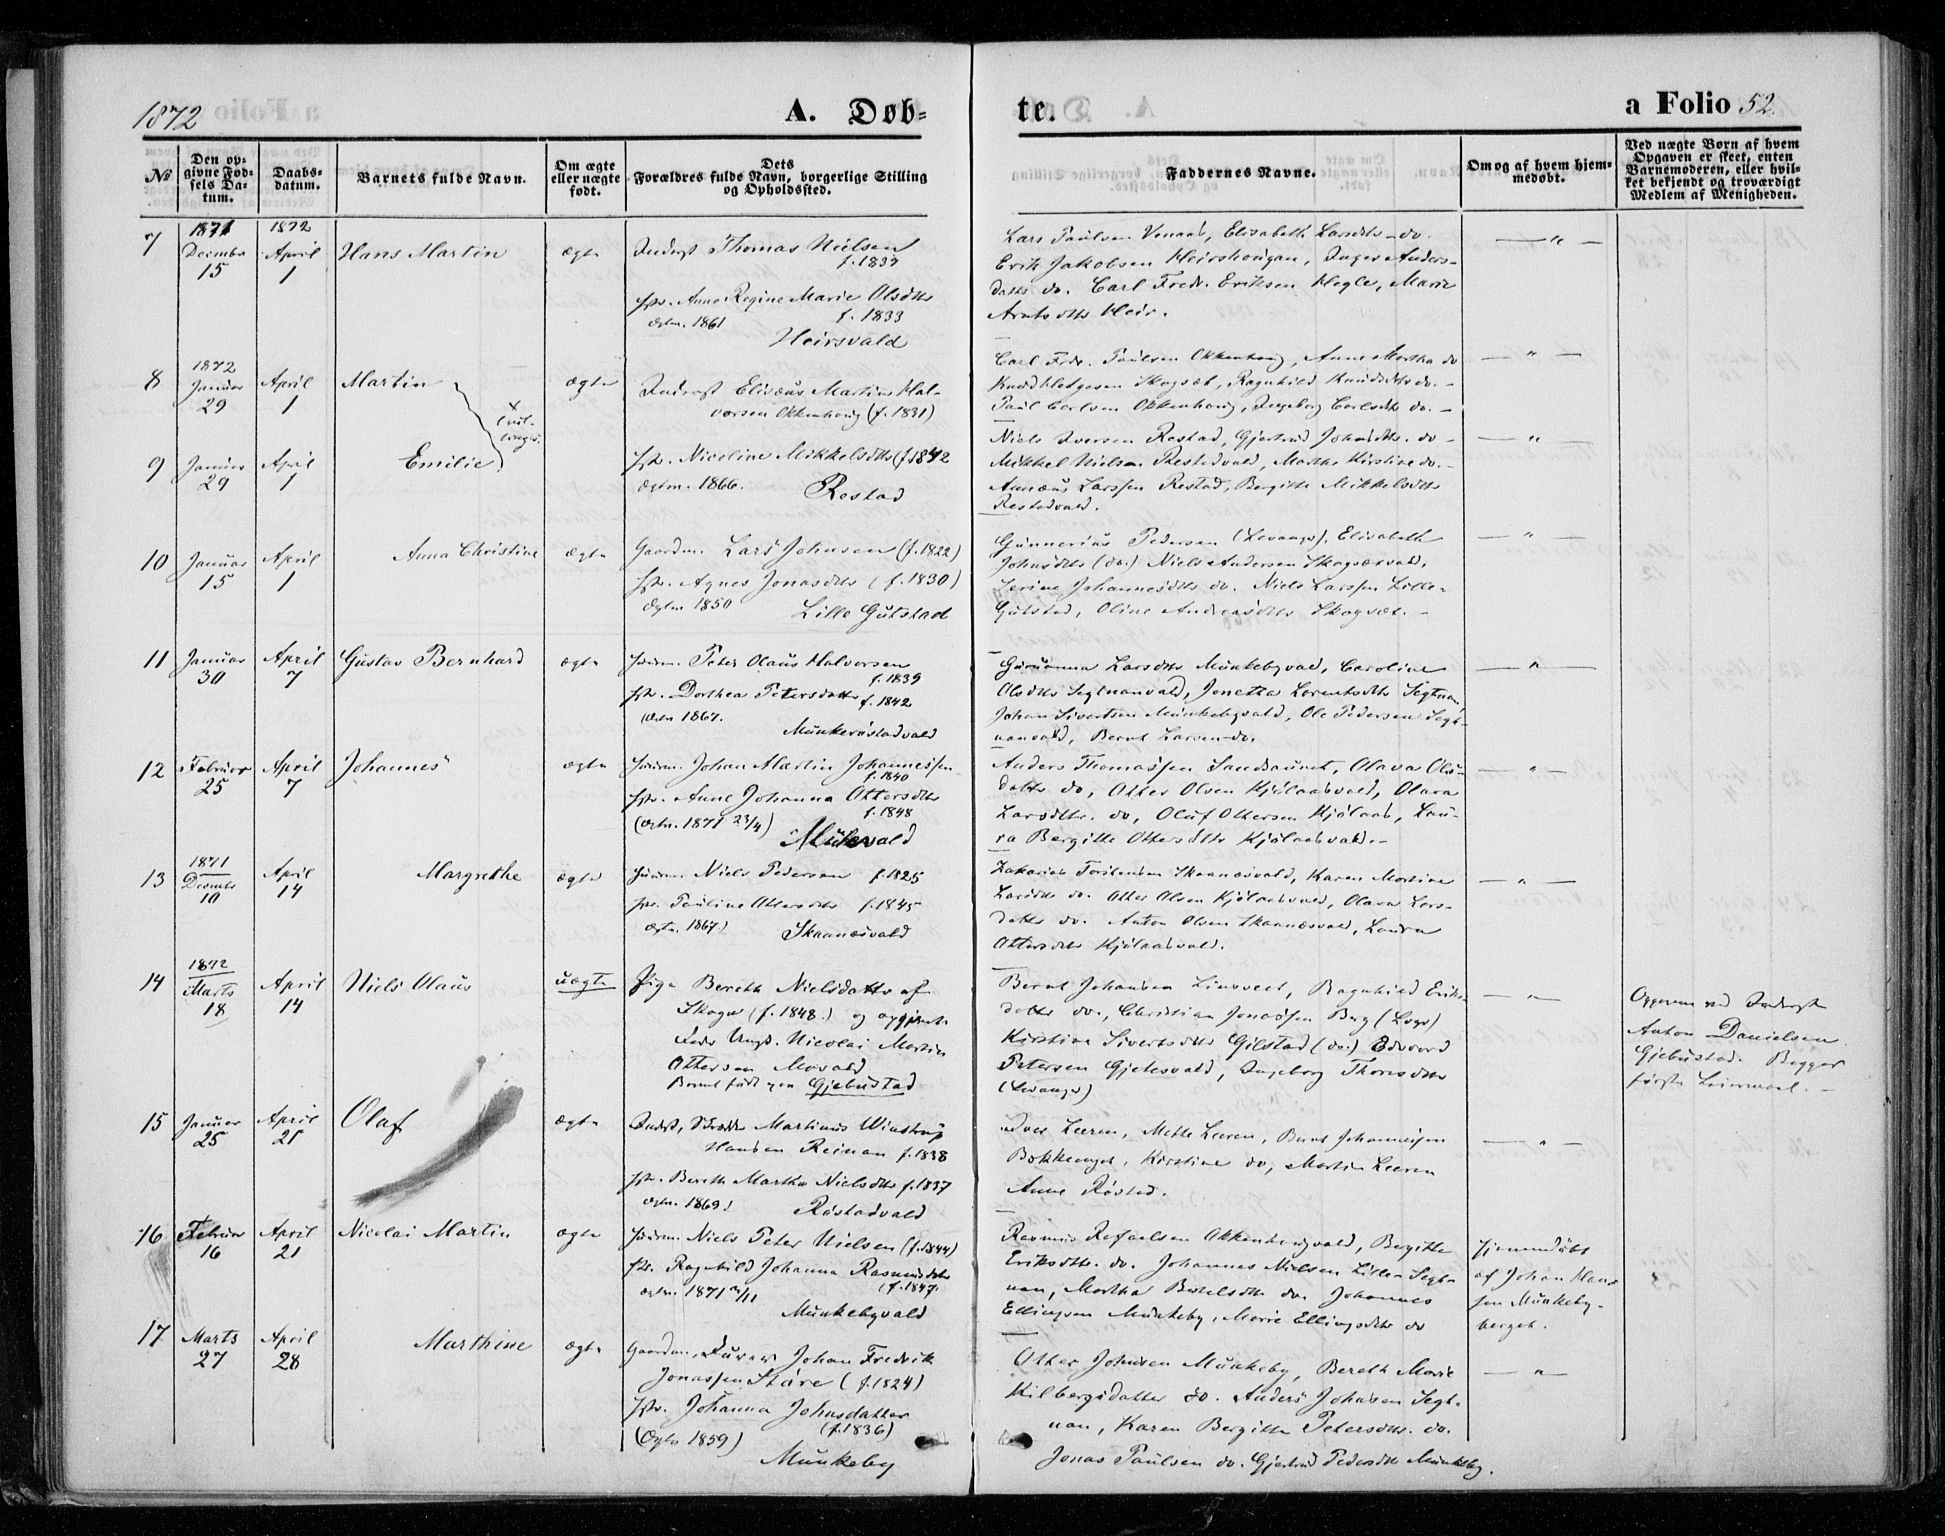 1872
A. Døb-
te.
a Folio 52.
№
Den op-
givne Fød-
sels Da-
tum.
Daabs-
datum.
Barnets fulde Navn.
Om ægte
eller uægte
født.
Dets
Forældres fulde Navn, borgerlige Stilling
og Opholdssted.
Faddernes Navne.
Om og af hvem hjem-
medøbt.
Ved uægte Børn af hvem
Opgaven er skeet, enten
Barnemoderen, eller hvil-
ket bekjendt og troværdigt
Medlem af Menigheden.
7
1871
Decmbr
15
1872
April
1
Hans Martin
ægte
Inderst Thomas Nielsen
f. 1839
Hstr. Anne Regine Marie Olsdttr
ægtev. 1861
f. 1833
Heirsvald
Lars Paulsen Venaas, Elisabeth Larsdttr do.
Erik Jakobsen Heirshougan, Inger Anders-
datter do. Carl Fredr. Eriksen Hegle, Marie
Arntsdttr Heir.
— " —
8
1872
Januar
29
April
1
Martin
x
Tvil-
linger.
ægte
Inderst Elisæus Martin Hal-
vorsen Okkenhoug (f. 1831)
Carl Fredr. Paulsen Okkenhoug, Anne Martha do
Knud Helgesen Skogset, Ragnhild Knudsdttr do. -
Paul Carlsen Okkenhoug, Ingeborg Carlsdttr do. -
— " —
9
Januar
29
April
1
Emilie
Hstr. Nicoline Mikkelsdttr (f. 1842
ægtev. 1866.
Restad
Niels Iversen Restad, Gjertrud Johnsdttr. do -
Mikkel Nielsen Restadvald, Marthe Kirstine do. -
Annæus Larssen Restad, Bergitte Mikkelsdttr
Restadvald.
— " —
10
Januar
15
April
1
Anna Christine
ægte
Gaardm. Lars Johnsen (f. 1822)
Hstr. Agnes Jonasdttr (f. 1830)
ægtev 1850
Lille Gutstad
Gunnerius Pedersen (Levanger). Elisabeth
Johnsdttr (do.) Niels Andersen Skogsetvald,
Serine Johannesdttr do. Niels Larssen Lille-
Gutstad, Oline Andreasdttr Skogset. -
— " —
11
Januar
30
April
7
Gustav Bernhard
ægte
Husm. Peter Olaus Halvorsen
f. 1839
Hstr. Dorthea Petersdatter f. 1842
(ægtev 1867.
Munkerøstadvald
Gurianna Larsdttr Munkebyvald, Caroline
Olsdttr Segtnanvald, Jonetta Lorentsdttr Segtnan
Johan Sivertsen Munkebyvald, Ole Pedersen Segt-
nanvald, Bernt Larsen do.
— " —
12
Februar
25
April
7
Johannes
ægte
Husm. Johan Martin Johannessen
f. 1840
Hstr. Anne Johanna Ottersdttr
f. 1848
(ægtev. 1871 23/4)
Mulevald
Anders Thomassen Sandsaunet, Olava Ols-
datter do, Otter Olsen Kjølaasvald, Olava
Larsdttr. do, Oluf Ottersen Kjølaas, Lau-
ra Bergitte Ottersdttr Kjølaasvald. -
— " —
13
1871
Decmbr
10
April
14
Margrethe
ægte
Husm. Niels Pedersen f. 1825
Hstr. Pauline Ottersdttr f. 1845
ægtev. 1867)
Skaanesvald
Zakarias Torstensen Skaanesvald, Karen Martine
Larsdttr do. Otter Olsen Kjølaasvald, Olava Lars-
datter do. Anton Olsen Skaanesvald, Laura
Ottersdttr Kjølaasvald.
— " —
14
1872
Marts
18
April
14
Niels Olaus
uægte
Pige Bereth Nielsdatter af
Skogn (f. 1848.) og opgivne
Fader Ungk. Nicolai Martin
Ottersen Movald
Barnet født paa Gjebustad
Bernt Johansen Linsveet, Ragnhild Eriks-
datter do., Christian Jonassen Berg (Lvgr)
Kirstine Sivertsdttr Gilstad (do.) Edvard
Petersen Gjetesvald, Ingeborg Thoresdttr
(Levanger)
— " —
Opgaven ved Inderst
Anton Danielsen
Gjebustad. Begges
første Leiermaal. -
15
Januar
25
April
21
Olaf
ægte
Inderst, Skrædder Martinus Winstrup
Hansen Reinan f. 1838
Hstr. Bereth Martha Nielsdttr f. 1837
ægtev. 1869)
Røstadvald
Iver Leeren, Mette Leeren, Bernt Johannessen
Bakkenget, Kirstine do, Martin Leeren
Anne Røstad.
— " —
16
Februar
16
April
21
Nicolai Martin
ægte
Husm. Niels Peter Nielsen (f. 1844)
Hstr. Ragnhild Johanna Rasmusdttr
(f. 1847.
ægtev. 1871 /11
Munkebyvald
Rasmus Rafaelsen Okkenhougvald, Bergitte
Eriksdttr. do. Johannes Nielsen Lille-Segt-
nan, Martha Bertelsdttr do. Johannes
Ellingsen Munkeby, Marie Ellingsdttr do
Hjemmedøbt
af Johan Hans-
sen Munkeby-
berget.
17
Marts
27
April
28
Marthine
ægte
Gaardm., Furer Johan Fredrik
Jonassen Støre (f. 1824)
Hstr. Johanna Johnsdatter
(f. 1836)
(ægtev 1859)
Munkeby
Otter Johnsen Munkeby, Bereth Marie
Kilbergsdatter do. Anders Johnsen Segt-
nan, Karen Bergitte Petersdttr. do.
Jonas Paulsen do. Gjertrud Pedersdttr Munkeby.
— " —